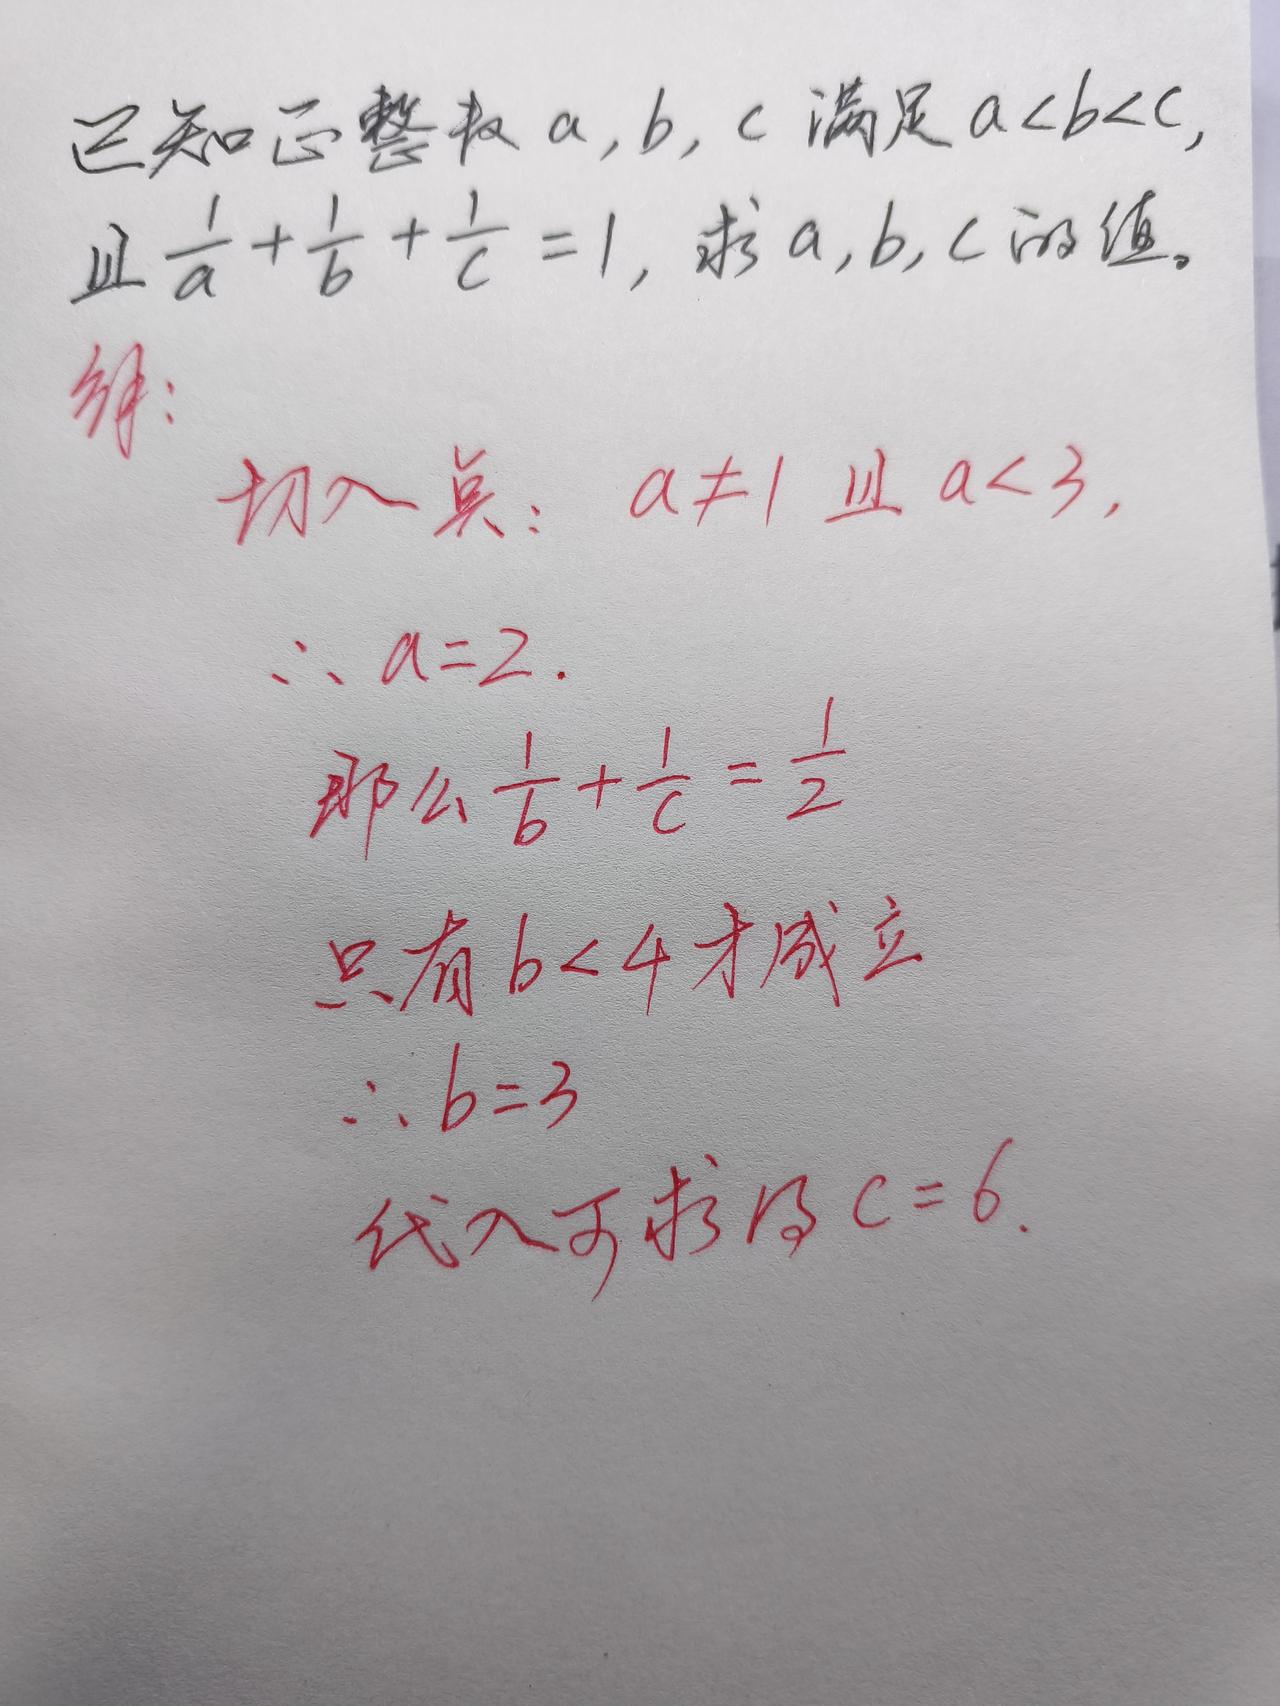 已知正整数 a, b, c 满足 a<b<c,
且 1/a + 1/b + 1/c = 1, 求 a, b, c 的值。
解:
切入点: a≠1 且 a<3,
∴ a=2.
那么 1/b + 1/c = 1/2
只有 b<4 才成立
∴ b=3
代入可求得 c=6.